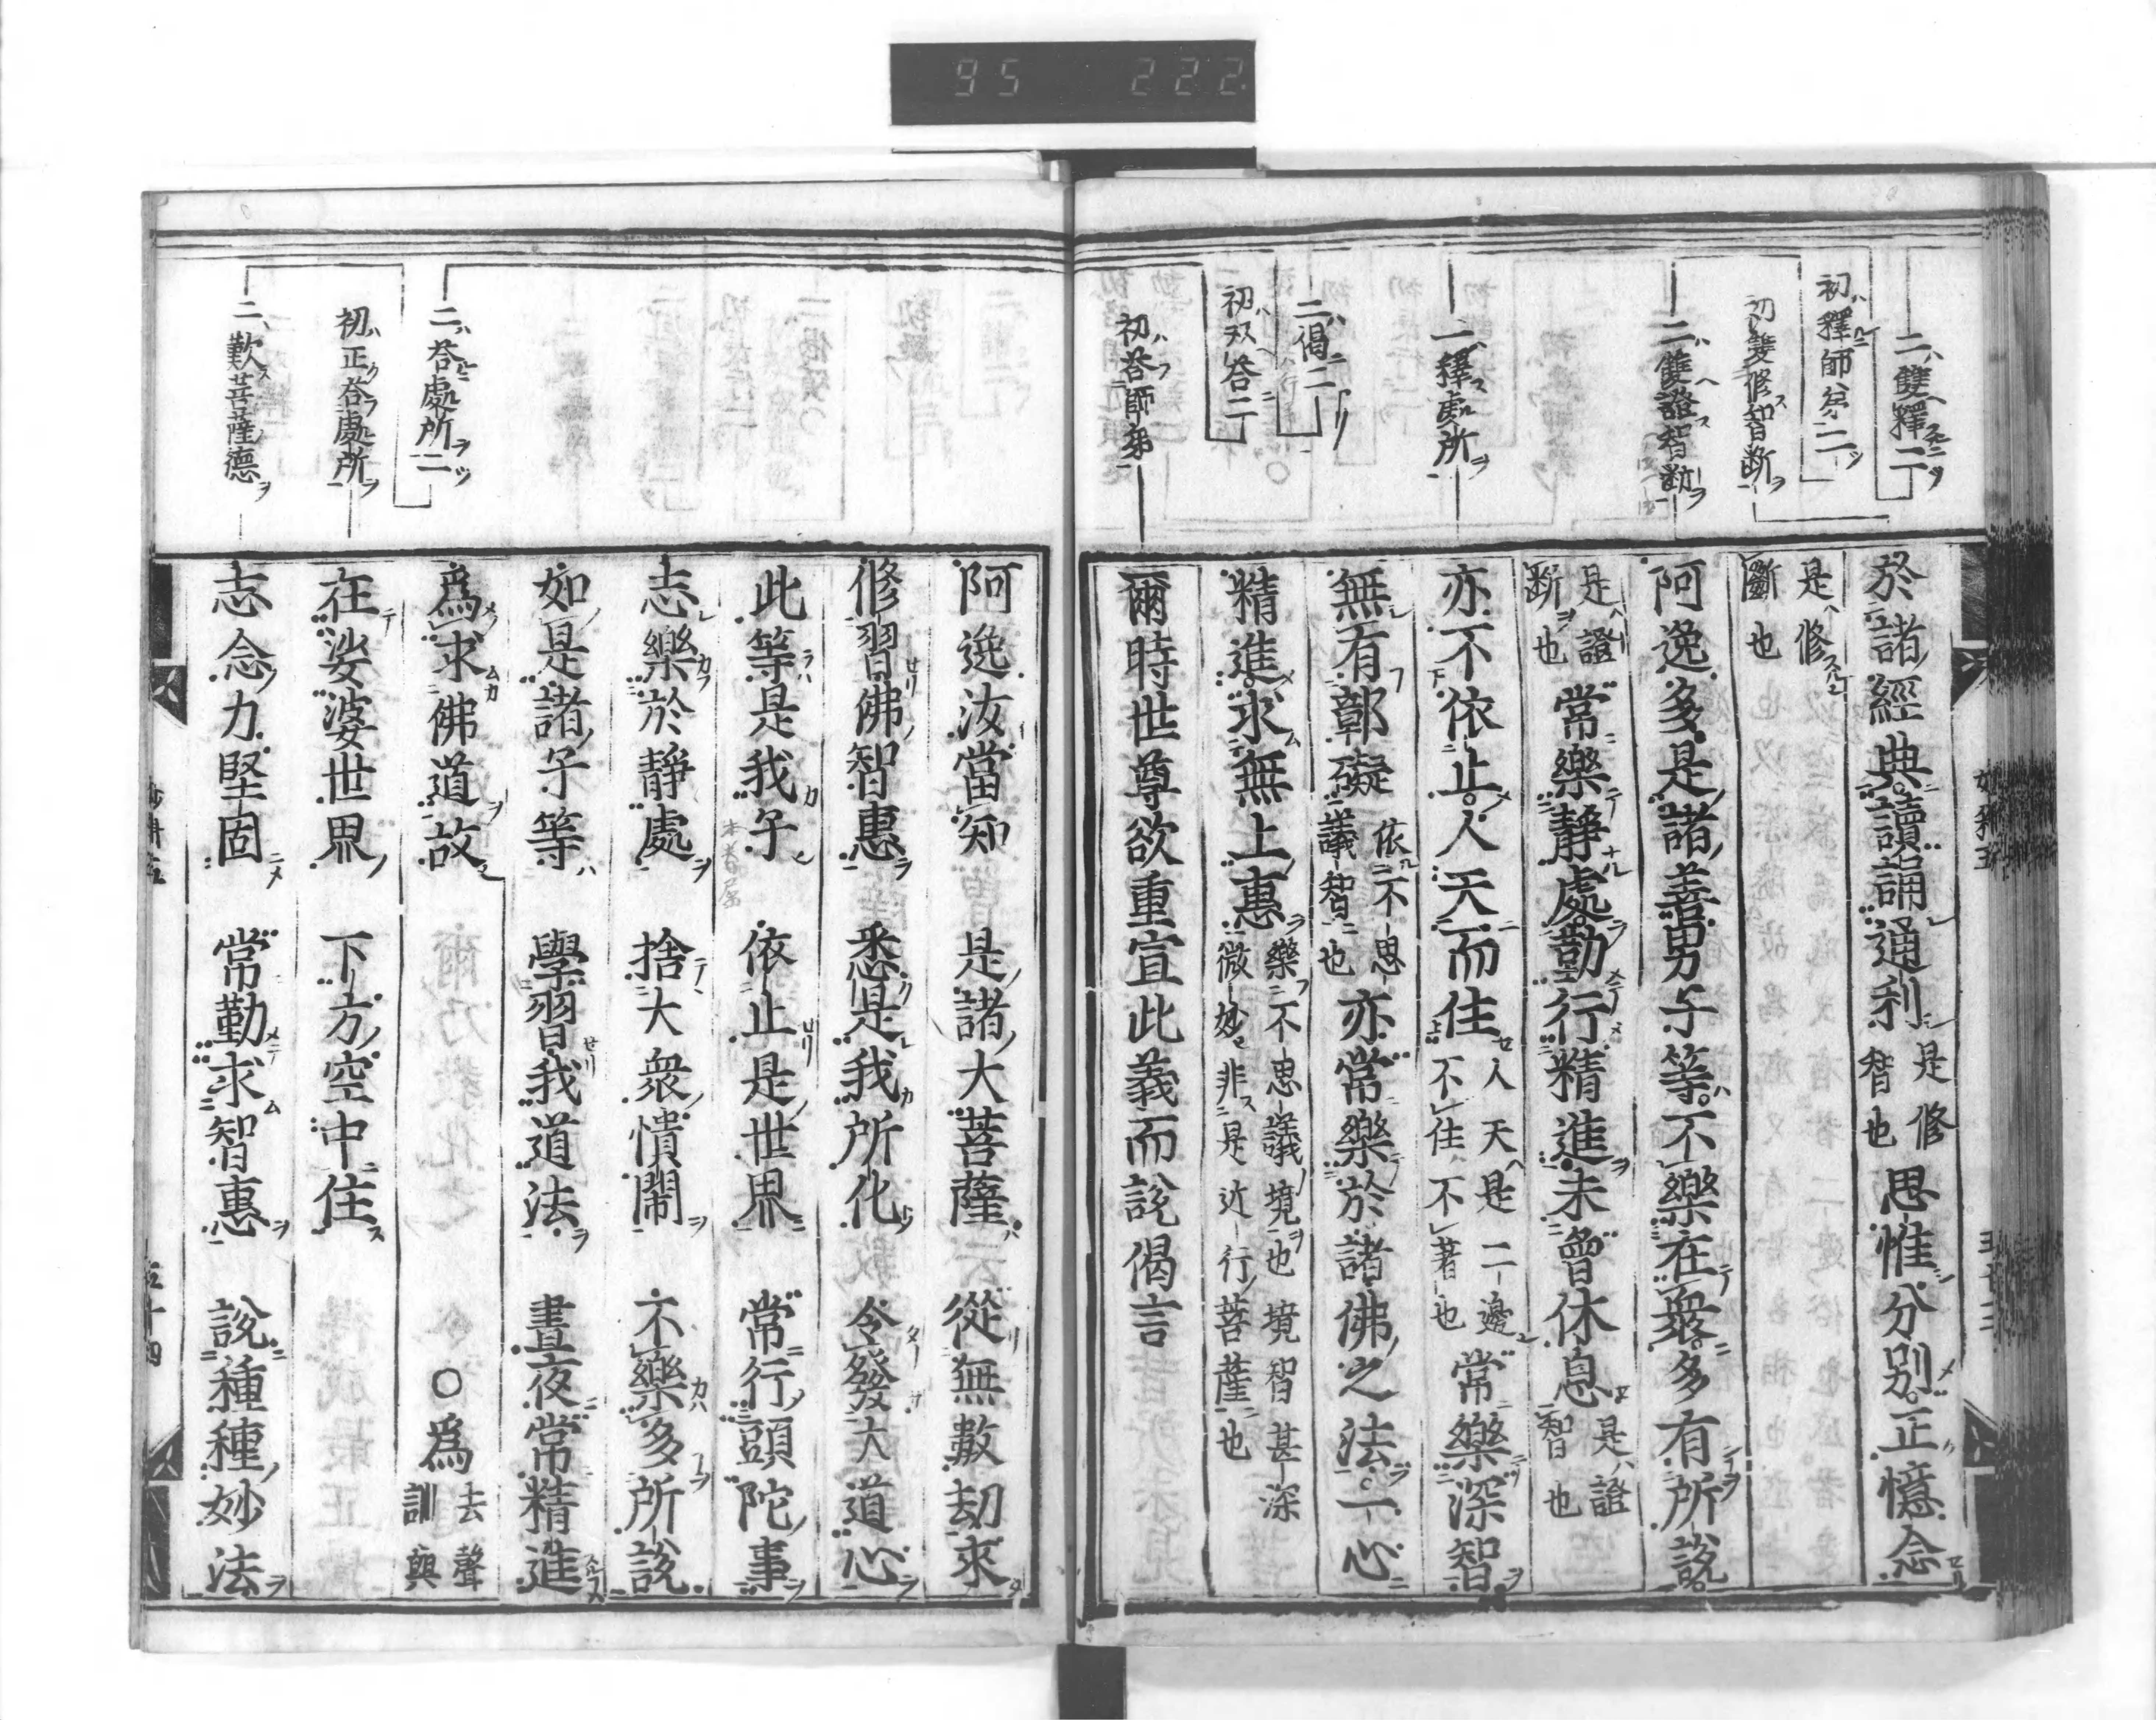 95 222
二雙釋二
初釋師弟二
初雙修智断
二雙證智断
二釋處所
二偈二
初双答二
初答師弟
於諸經典讀誦通利
是修
智也
思惟分別正憶念
是修
斷也
阿逸多是諸善男子等不樂在衆多有所說
是證
断也
常樂靜處勤行精進未曾休息
是證
智也
亦不依止人天而住
人天是二邊
不住不著也
常樂深智
無有鄣礙
依不思
議智也
亦常樂於諸佛之法一心
精進求無上惠
樂不思議境也境智甚深
微妙非是近行菩薩也
爾時世尊欲重宣此義而說偈言
二答處所二
初正答處所
二歎菩薩德
阿逸汝當知　是諸大菩薩　從無數劫來
修習佛智惠　悉是我所化　令發大道心
此等是我子　依止是世界　常行頭陀事
志樂於靜處　捨大衆憒閙　不樂多所說
如是諸子等　學習我道法　晝夜常精進
為求佛道故
○為
去聲
訓與
在娑婆世界　下方空中住
志念力堅固　常勤求智惠　說種種妙法
五十四